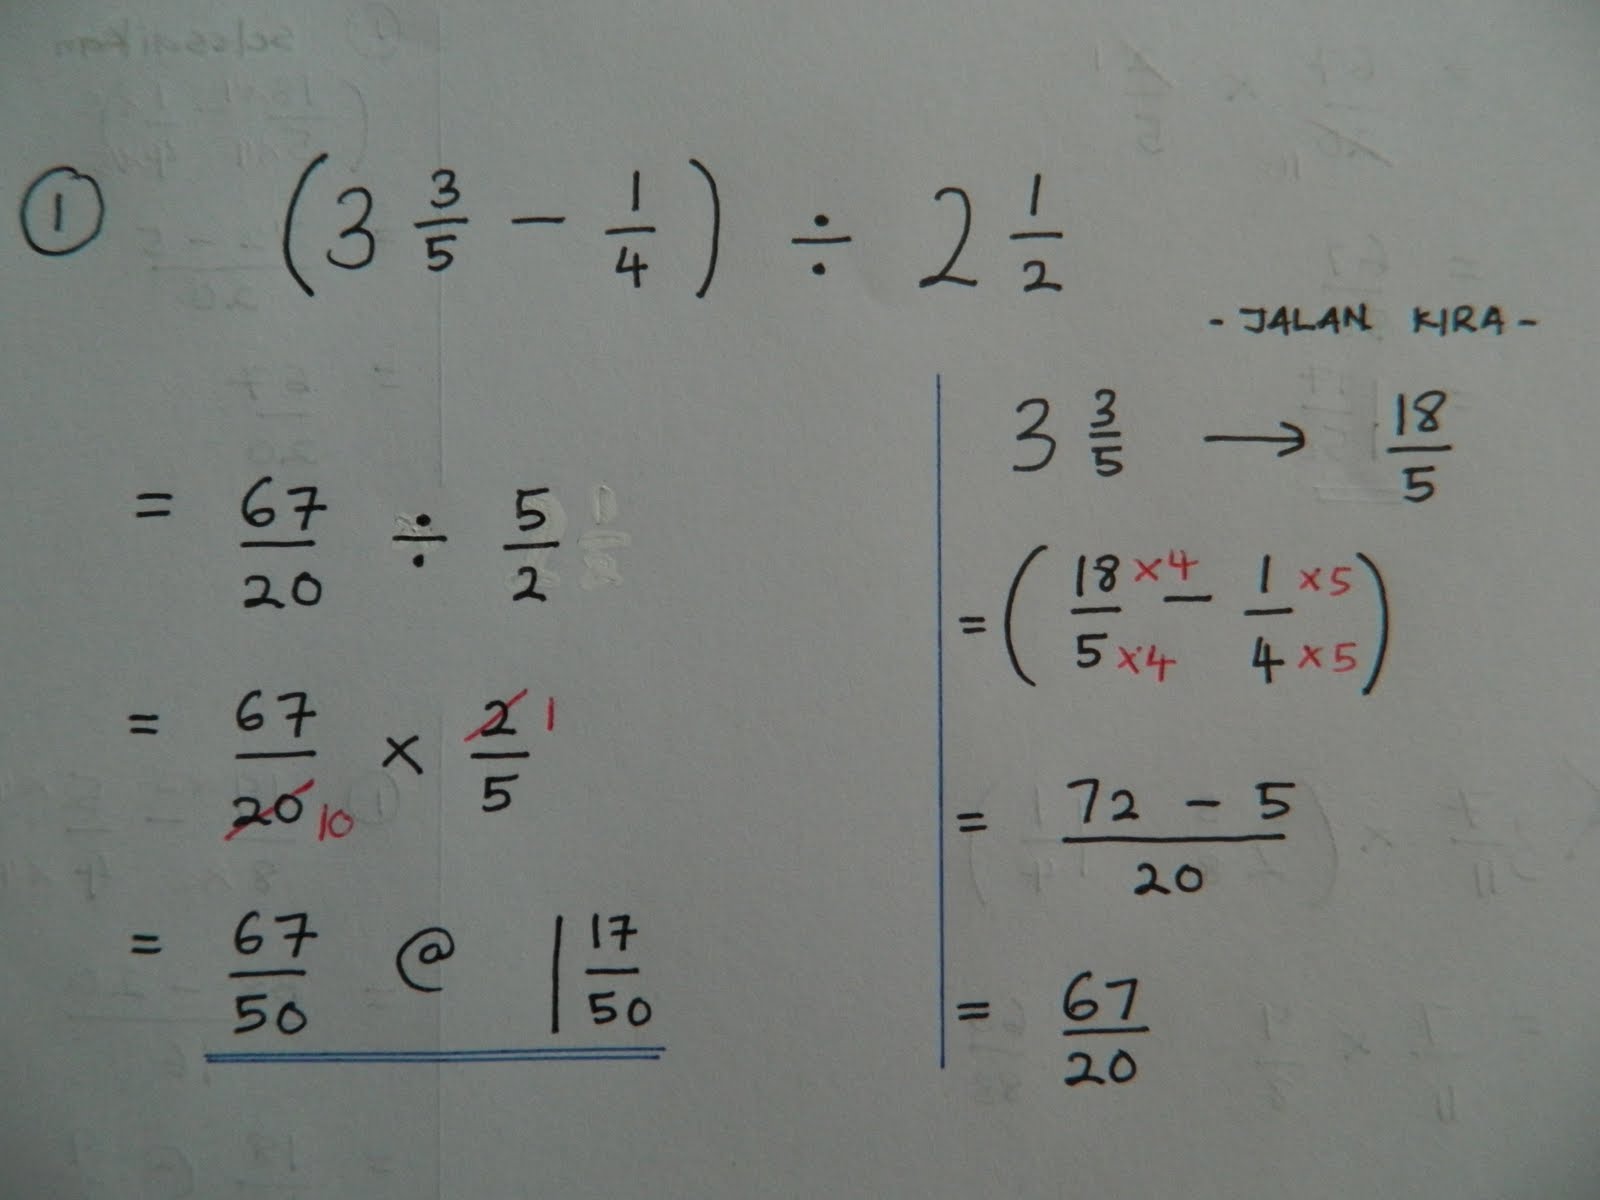 ① (3 3/5 − 1/4) ÷ 2 1/2
- JALAN KIRA -
= 67/20 ÷ 5/2
= 67/20 10 × 2/5 1
= 67/50 @ 1 17/50
3 3/5 → 18/5
= (18×4/5×4 − 1×5/4×5)
= 72 − 5/20
= 67/20